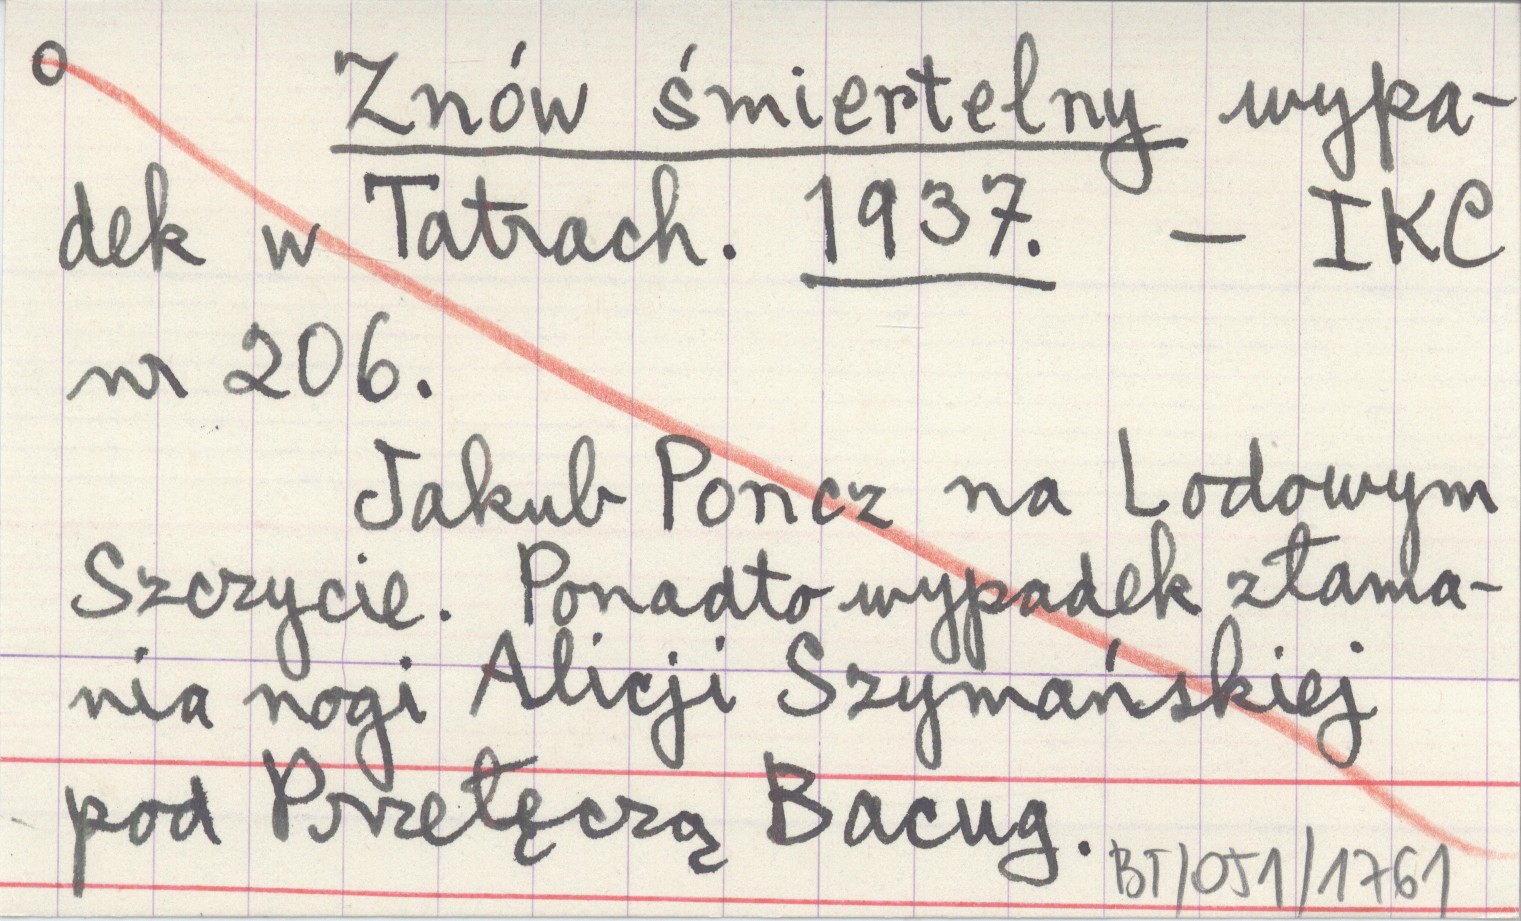 O Znów śmiertelny wypa-
dek w Tatrach. 1937. – IKC
nr 206.
Jakub Poncz na Lodowym
Szczycie. Ponadto wypadek złama-
nia nogi Alicji Szymańskiej
pod Przełęczą Bacug.
BT/051/1761